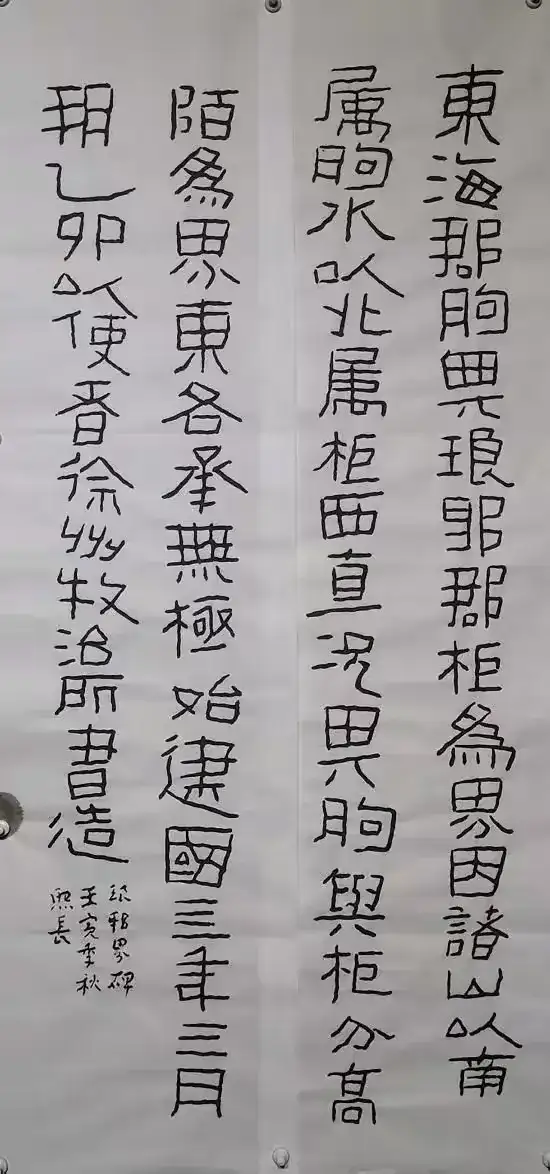 東海郡朐琅邪郡柜為界因諸山以南
属朐水以北属柜西直況朐與柜分高
陌為界東各承無極始建國三年三月
朔乙卯以使者徐州牧治所書造
琅邪界碑
壬寅季秋
熙長